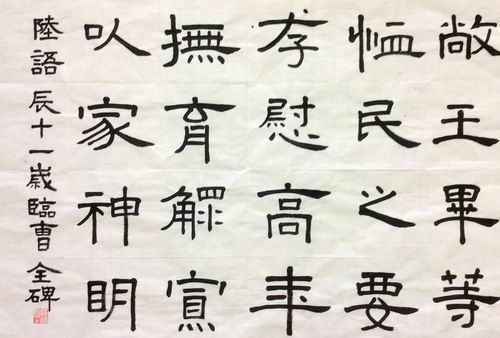 敞王畢等
恤民之要
存慰高年
撫育鰥寡
以家神明
陸語辰十一歲臨曹全碑